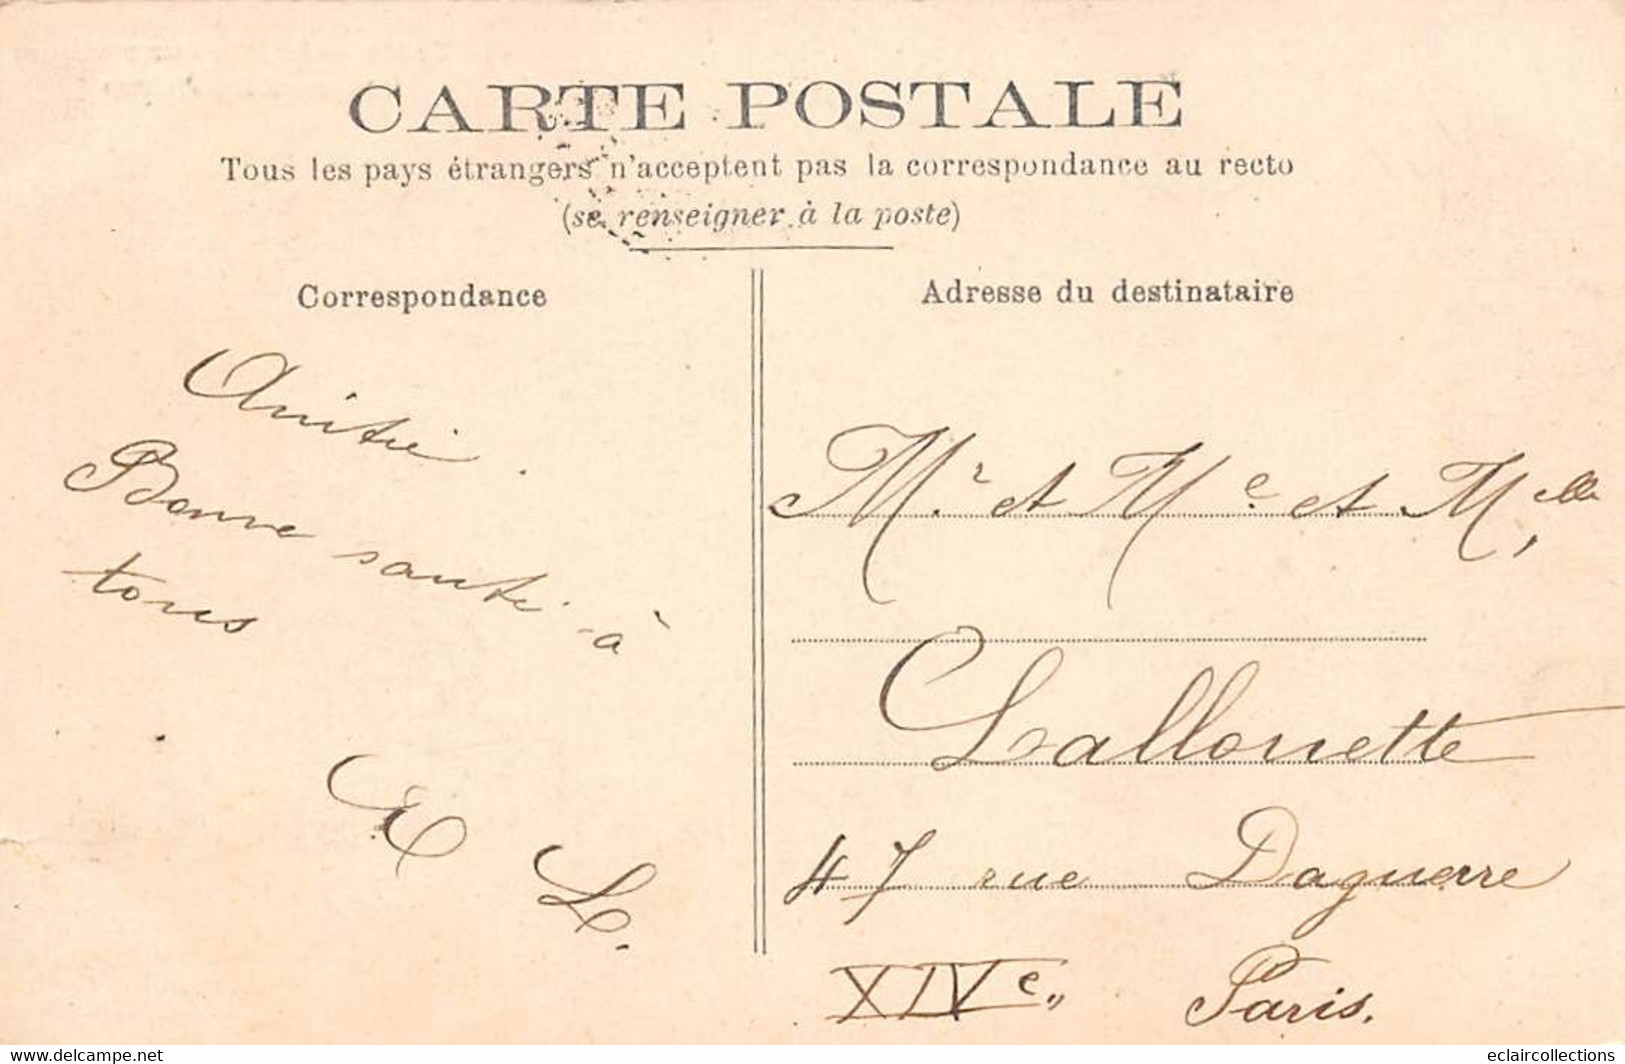 CARTE POSTALE
Tous les pays étrangers n'acceptent pas la correspondance au recto
(se renseigner à la poste)
Correspondance
Adresse du destinataire
Amitié.
Bonne santé à
tous
L.
Mr et Me et Melle
Lallouette
47 rue Daguerre
XIVe Paris.
www.delcampe.net
eclaircollections